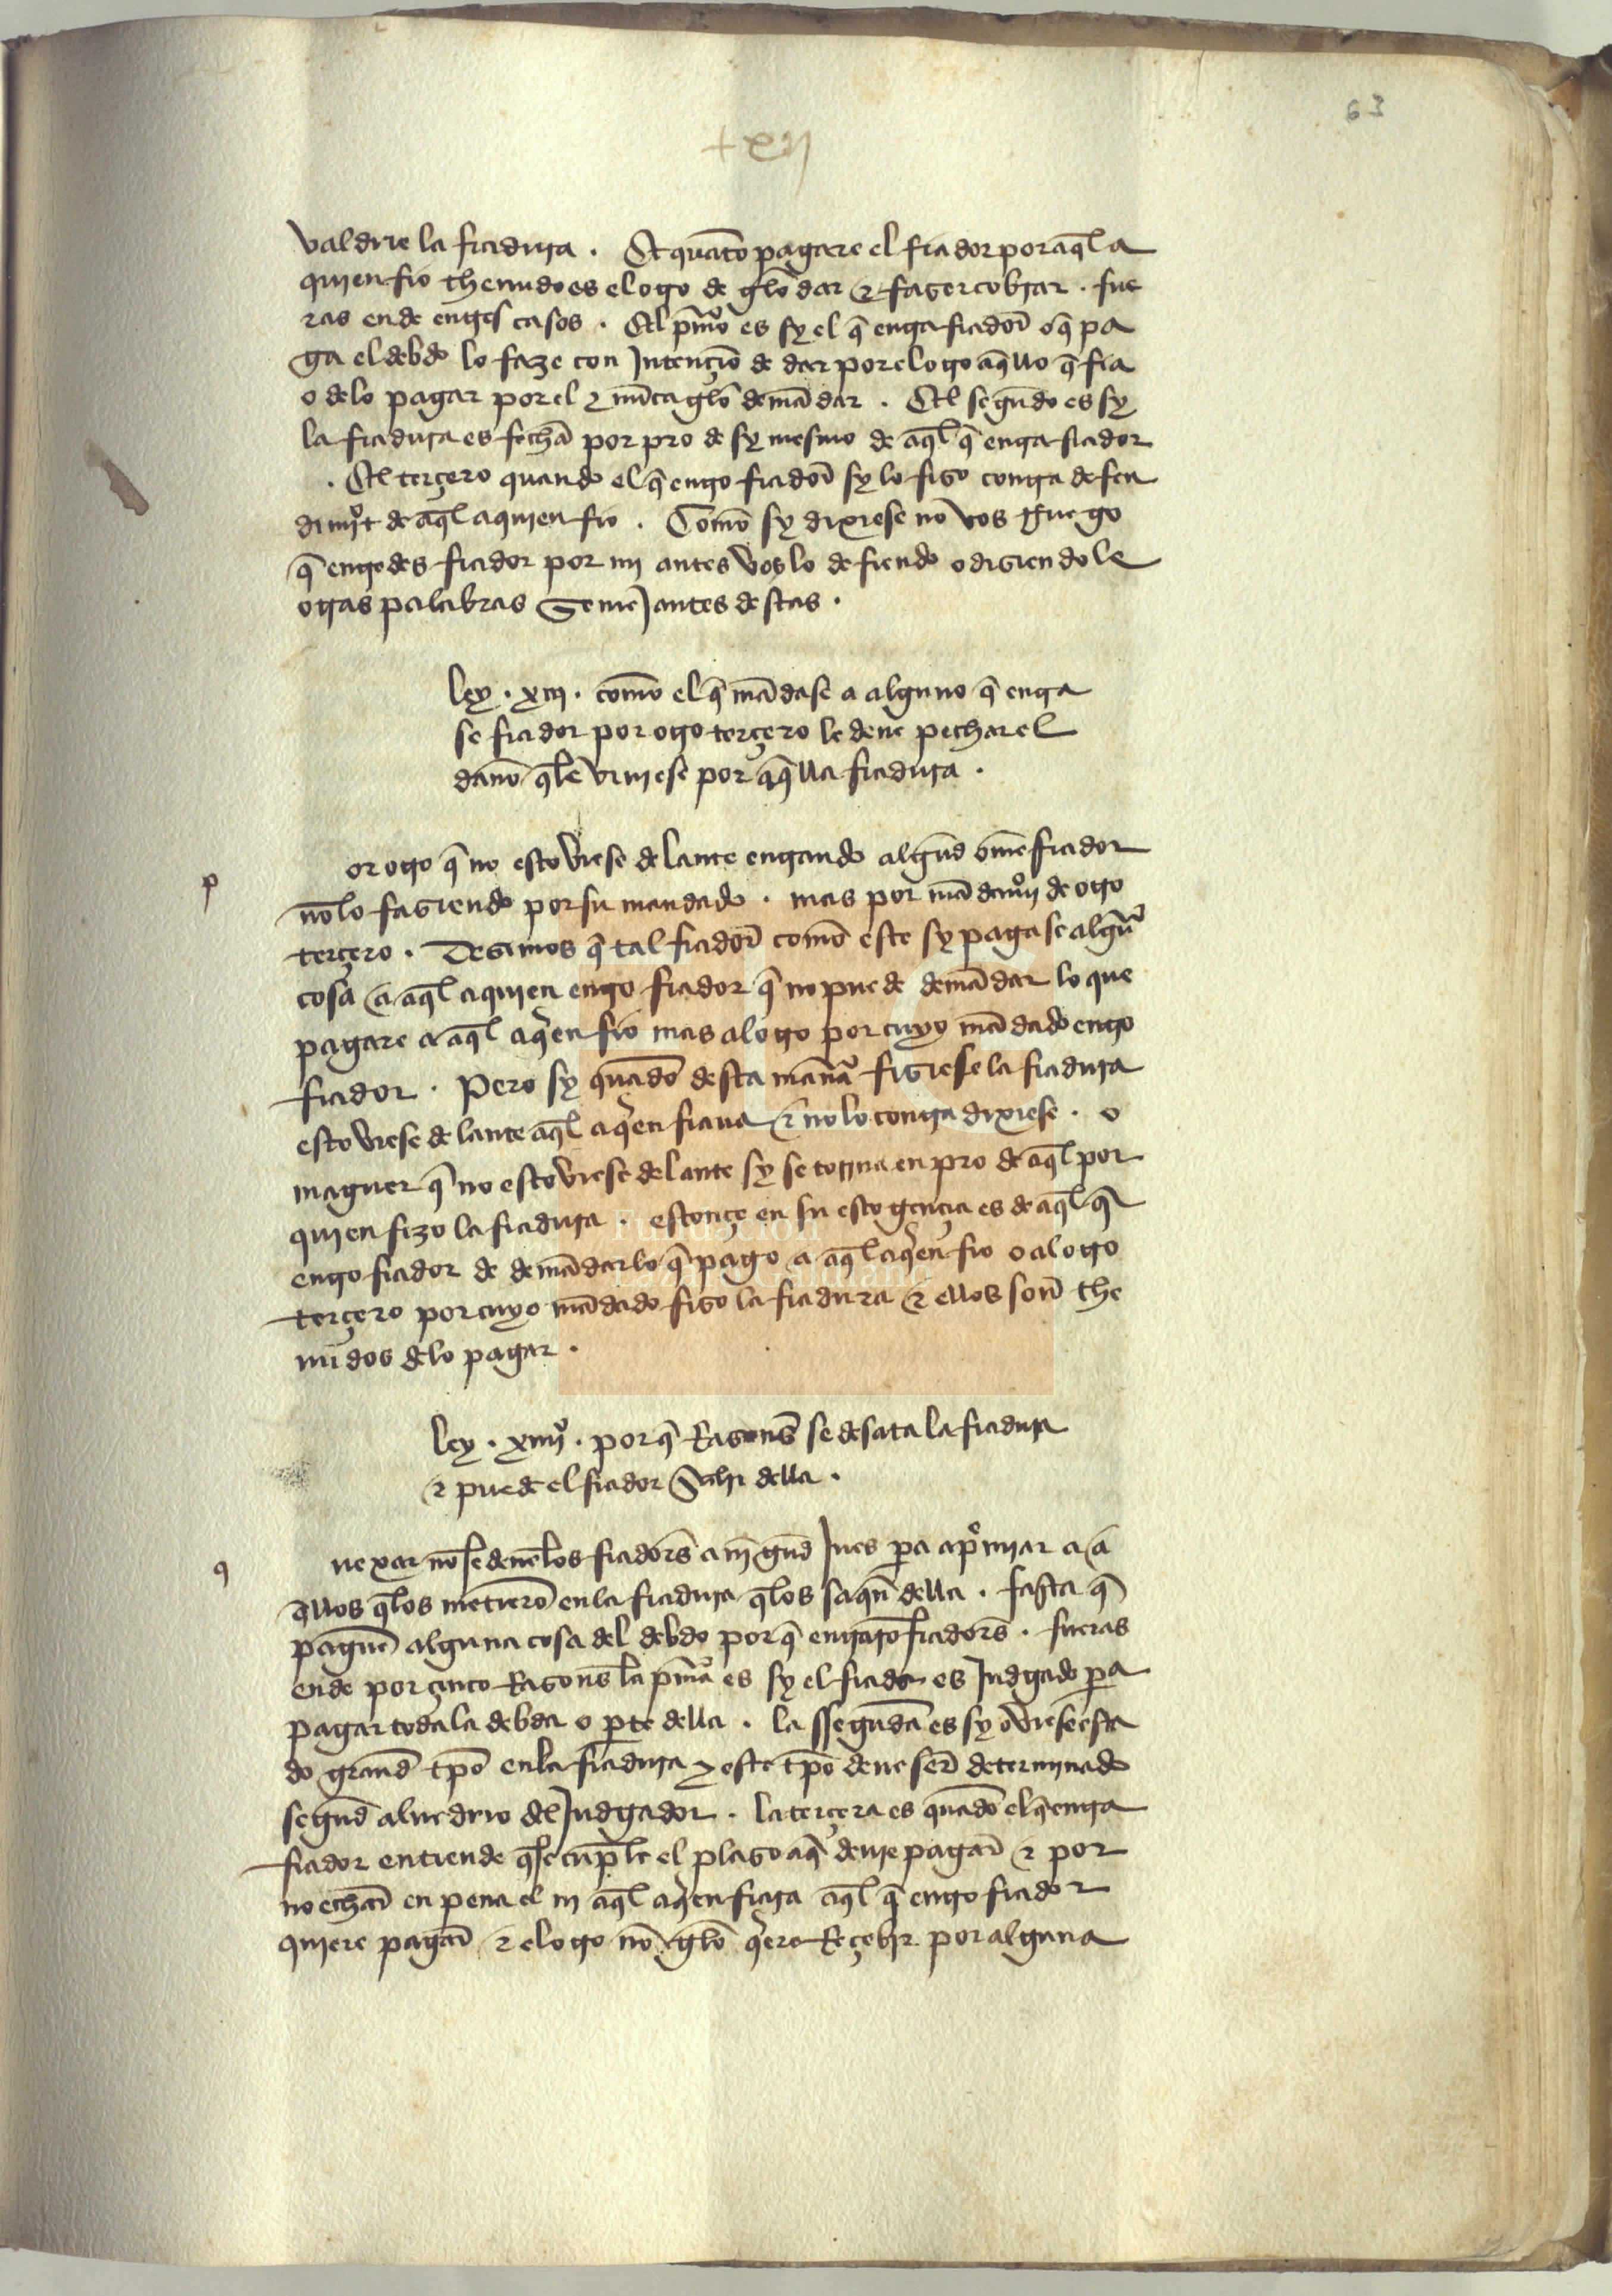 63
+ xij
valdrie la fiadura . Et quãto pagare el fiador por aq̃l a
quien fio thenudo es el otro de gelo dar & faser cobrar . fue
ras ende en tres casos . El pͥmo es sy el q̃ entra fiador o q̃ pa
ga el debdo lo faze con Intençiõ de dar por el otro aq̃llo q̃ fia
o de lo pagar por el & nũca gelo demãdar . El segũdo es sy
la fiadura es fecha por pro de sy mesmo de aq̃l q̃ entra fiador
. El terçero quando el q̃ entro fiador sy lo fiso contra defen
dimͥto de aq̃l a quien fio . Como sy dixiese no vos Ruego
q̃ entredes fiador por mi antes vos lo defiendo o disiendole
otras palabras semeJantes destas .
ley . xiij . como el q̃ mãdase a alguno q̃ entra
se fiador por otro terçero le deue pechar el
dano q̃le viniese por aq̃lla fiadura .
p
or otro q̃ no estoviese delante entrando algũd ome fiador
nõ lo fasiendo por su mandado . mas por mãdamͥ de otro
terçero . Desimos q̃ tal fiador como este sy pagase algũa
cosa a aq̃l a quien entro fiador q̃ no puede demãdar lo que
pagare a aq̃l a qͥen fio mas al otro por cuyo mãdado entro
fiador . Pero sy quãdo desta manͣa fisiese la fiadura
estoviese delante aq̃l a qͥen fiaua & no lo contradixiese . o
maguer q̃ no estoviese delante sy se torna en pro de aq̃l por
quien fizo la fiadura . estonçe en su escogençia es de aq̃l q̃
entro fiador de demãdar lo q̃ pago a aq̃l a qͥen fio o al otro
terçero por cuyo mãdado fiso la fiadura & ellos son the
nudos de lo pagar .
ley . xiiijͦ . por q̃ Rasones se desata la fiadura
& puede el fiador salir della .
q
uexar nõ se deuẽ los fiadores a nĩgũd Jues pa apͤmiar a a
q̃llos q̃los metierõ en la fiadura q̃los saquẽ della . fasta q̃
paguẽ alguna cosa del debdo por q̃ entrarõ fiadores . fueras
ende por çinco Rasones la pͥmͣa es sy el fiador es Judgado pa
pagar toda la debda o pte della . la ssegũda es sy oviese esta
do grand tpõ en la fiadura & este tpõ deue ser determinado
segũd aluedrio del Judgador . la terçera es quãdo el q̃ entra
fiador entiende q̃ se cũple el plaso a q̃ deue pagar & por
no echar en pena el ni aq̃l a qͥen fiara aq̃l q̃ entro fiador
quiere pagar & el otro nõ gelo qͥere Reçebir por alguna